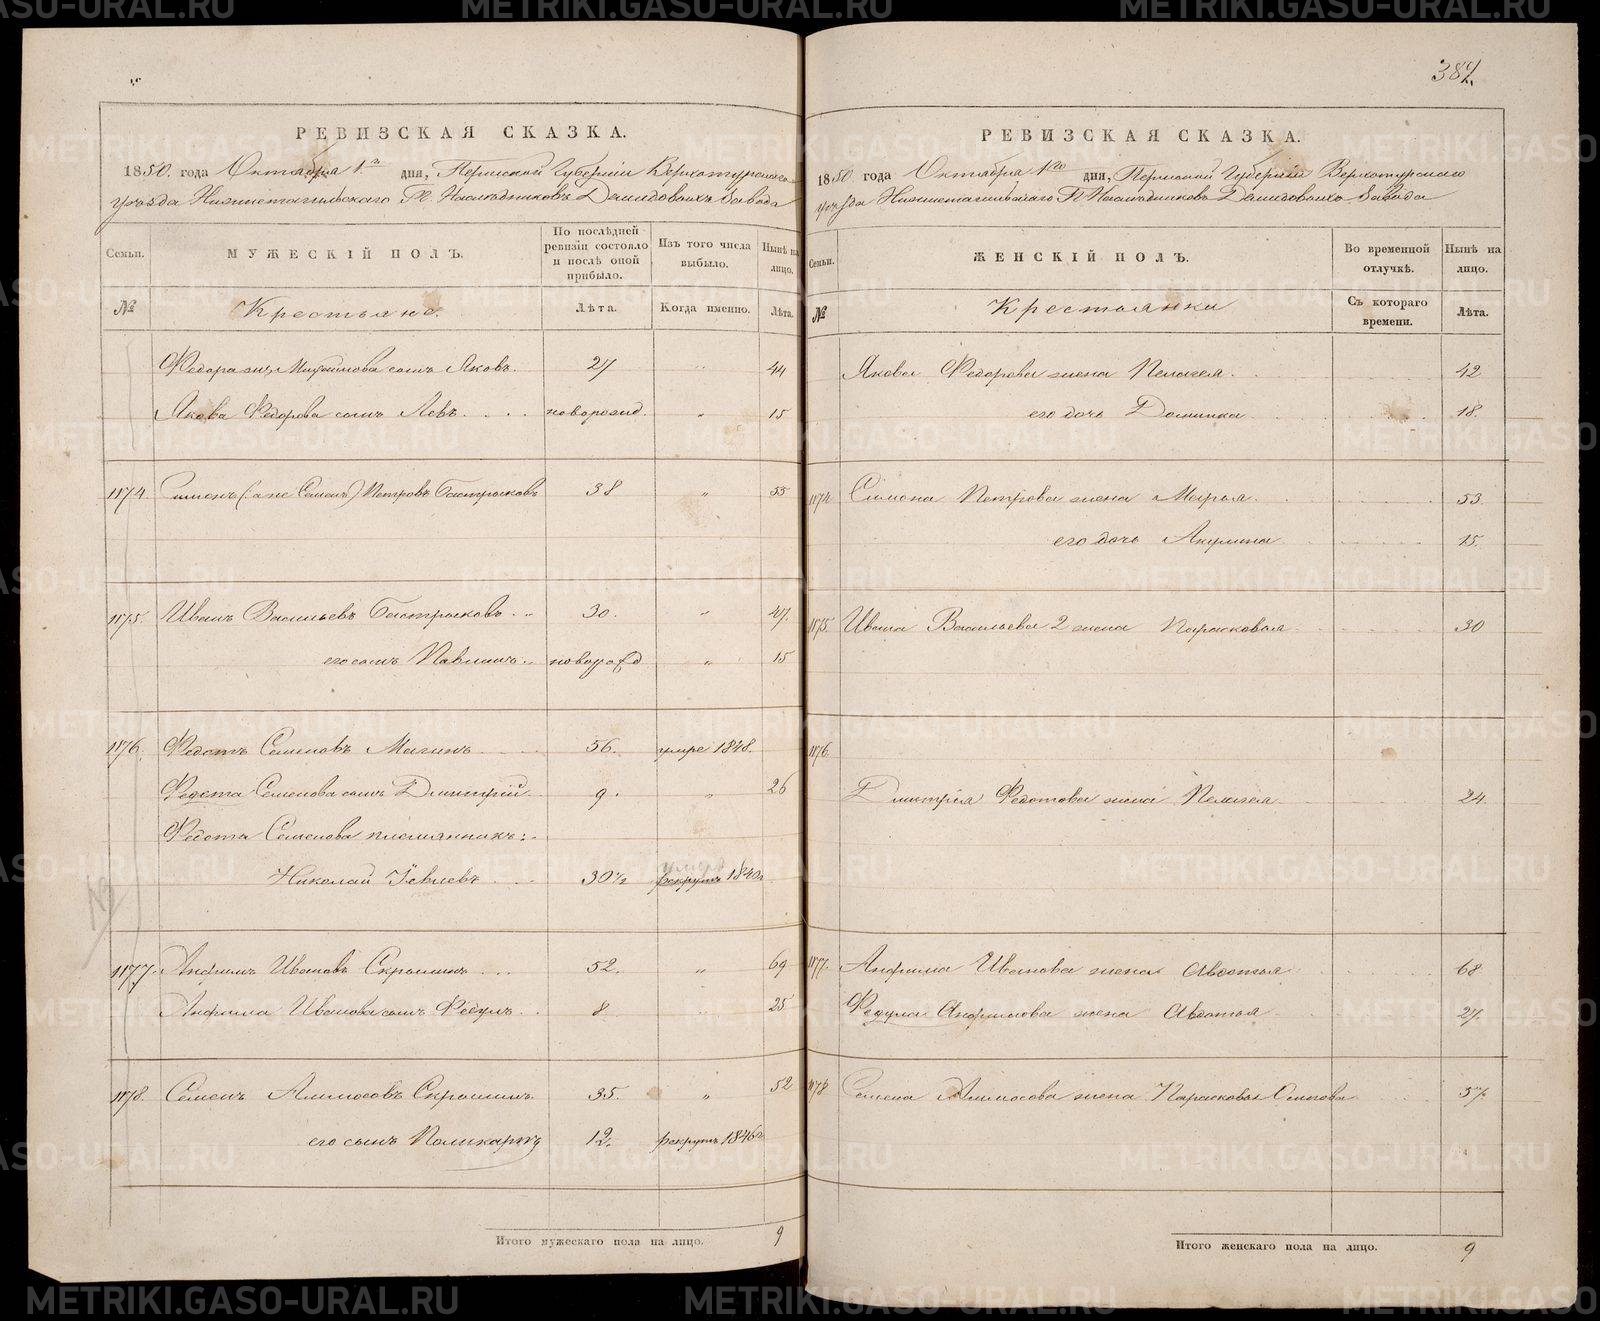 РЕВИЗСКАЯ СКАЗКА.
1850 года Октября 1го дня, Пермской Губерніи Верхотурскаго
уѣзда Нижнетагильскаго Гг. Наслѣдниковъ Демидовыхъ завода
Семьи. МУЖЕСКІЙ ПОЛЪ. По послѣдней ревизіи состояло и послѣ оной прибыло. Изъ того числа выбыло. Нынѣ на лицо.
№ Крестьяне. Лѣта. Когда именно. Лѣта.
Федора Михайлова сынъ Яковъ 27 " 44
Якова Федорова сынъ Левъ новорожд. " 15
1874. Симонъ (а не Семенъ) Петровъ 38 " 55
1875. Иванъ Васильевъ 30. " 47.
его сынъ новорожд " 15
1876. Федотъ Семеновъ 56. умре 1848.
Федота Семенова сынъ Дмитрій 9. " 26
Федота Семенова племянникъ:
Николай Іевлевъ 30½ умре рекрутъ 1840г
1877. Анфимъ Ивановъ Скроминъ 52. " 69
Анфима Иванова сынъ Федулъ 8 " 25
1878. Семенъ Скроминъ 35. " 52
его сынъ Поликарпъ 12. рекрутъ 1846г
Итого мужескаго пола на лицо. 9
382.
РЕВИЗСКАЯ СКАЗКА.
1850 года Октября 1го дня, Пермской Губерніи Верхотурскаго
уѣзда Нижнетагильскаго Гг. Наслѣдниковъ Демидовыхъ завода
Семьи. ЖЕНСКІЙ ПОЛЪ. Во временной отлучкѣ. Нынѣ на лицо.
№ Крестьянки Съ котораго времени. Лѣта.
Якова Федорова жена Пелагея 42
его дочь Домника 18.
1874. Симона Петрова жена Марья 53
его дочь Акулина 15.
1875. Ивана Васильева 2 жена Парасковья 30
1876.
Дмитрія Федотова жена Пелагея 24.
1877. Анфима Иванова жена Авдотья 68
Федула Анфимова жена Авдотья 27.
1878 Семена жена Парасковья Осипова 37
Итого женскаго пола на лицо. 9
METRIKI.GASO-URAL.RU